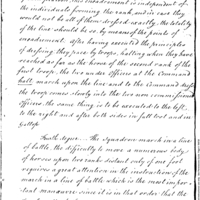 position, this measurement is independent of
the individuals forming the rank, and in case they
would not be all of them dressed exactly, the totality
of the line should be so, by means of the points of
measurement. After having executed the principles
of dressing they pace by troops, halting when they have
reached as far as the home of the second rank of the
first troop, the two under Officers at the Command
halt, march upon the line and to the Command dress
the troop comes slowly into the two non commissioned
Officers, the same thing is to be executed to the left,
to the right and after both sides in full trot and in
gallop.
The Squadron march in a line
of battle, the difficulty to move a numerous body
of horses upon two ranks distant only of one foot
requires a great attention in the instruction of the
march in a line of battle which is the most impor-
tant maneuvre since it is in that order that the